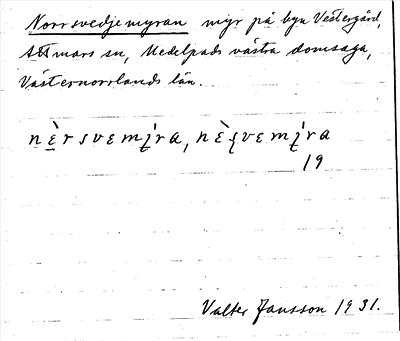 Norrsvedjemyran myr på byn Västergård,
Attmars sn, Medelpads västra domsaga,
Västernorrlands län.
nὲrsvɛmy̨̍ra, nὲʂvɛmy̨̍ra
19
Valter Jansson 1931.